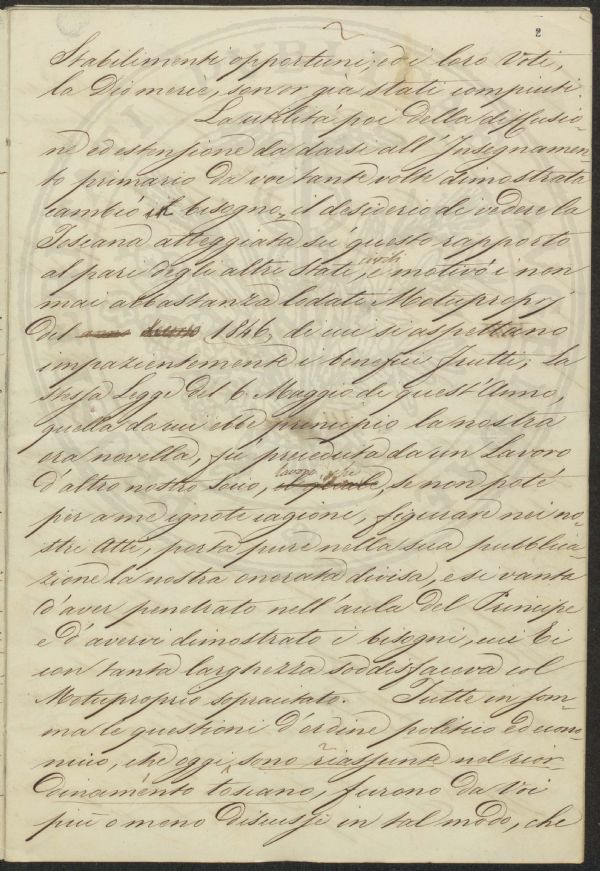 2
Stabilimenti opportuni, ed i loro Voti,
la Dio mercè, son or già stati compiuti.
La utilità poi della diffusio-
ne ed estensione da darsi all'Insegnamen-
to primario da voi tante volte dimostrata
cambiò in bisogno, il desiderio di vedere la
Toscana atteggiata su questo rapporto
al pari degli altri Stati civili, e motivò i non
mai abbastanza lodati Motupropj
del anno decorso 1846, di cui si aspettano
impazientemente i benefici frutti; La
stessa Legge del 6 Maggio di quest'Anno,
quella da cui ebbe principio la nostra
era novella, fù preceduta da un Lavoro
d'altro nostro Socio, lavoro che se non potè
per a me ignote cagioni, figurare nei no-
stri Atti, porta pure nella sua pubblica-
zione la nostra onorata divisa, e si vanta
d'aver penetrato nell'aula del Principe
e d'avervi dimostrato i bisogni, cui Ei
con tanta larghezza soddisfaceva col
Motuproprio sopracitato. Tutte in som-
ma le questioni d'ordine politico ed econo-
mico, che oggi sono riassunte nel rior-
dinamento toscano, furono da Voi
più o meno discusse in tal modo, che